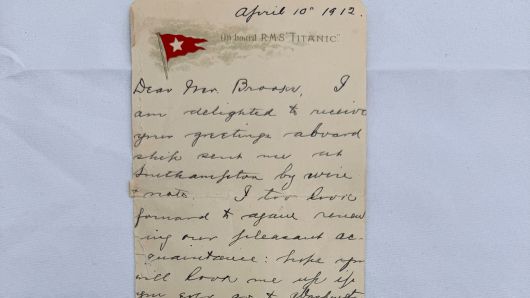 April 10th 1912.
On board R.M.S. "TITANIC"
Dear Mr. I
am delighted to receive
your greetings aboard
ship sent me at
Southampton by wire
& note. I too look
forward to again renew
ing our pleasant ac-
quaintance: hope you
will look me up if
you ever go to